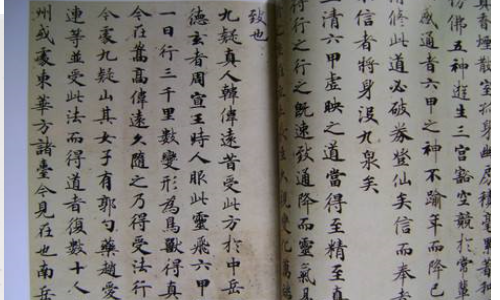 香煙散室孤身幽房積毫罍著和
彷彿五神遊生三宮豁空競於常輩
感通者六甲之神不踰年而降已
修此道必破券登仙矣信而奉
信者將身沒九泉矣
上清六甲虛映之道當得至精至真
行之行之既速致通降而靈氣易
變化萬端
致也
九疑真人韓偉遠昔受此方於中岳
德玄者周宣王時人服此靈飛六甲
一日行三千里數變形為鳥獸得真
今在嵩高偉遠久隨之乃得受法行
今處九疑山其女子有郭勺藥趙愛
連等並受此法而得道者復數十人
州或處東華方諸臺今見在也南岳